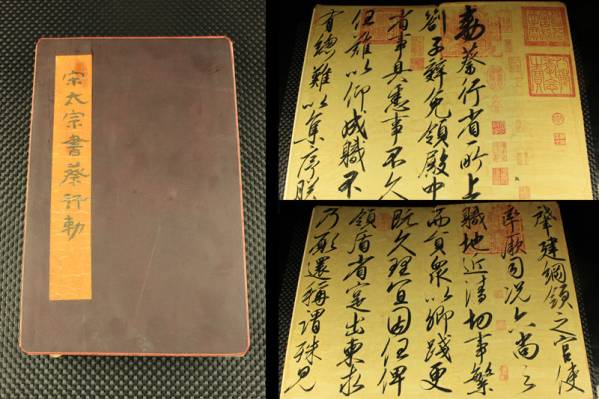 宋太宗書蔡行勅
勅蔡行省所上
劄子辭免領殿中
省事具悉事不久
任難以仰成職不
有總難以集序朕
肇建綱領之官使
率厥司況六尚之
職地近清切事繁
而員衆以卿踐更
既久理宜因任俾
領盾省寔出柬求
乃願還稱謂殊見